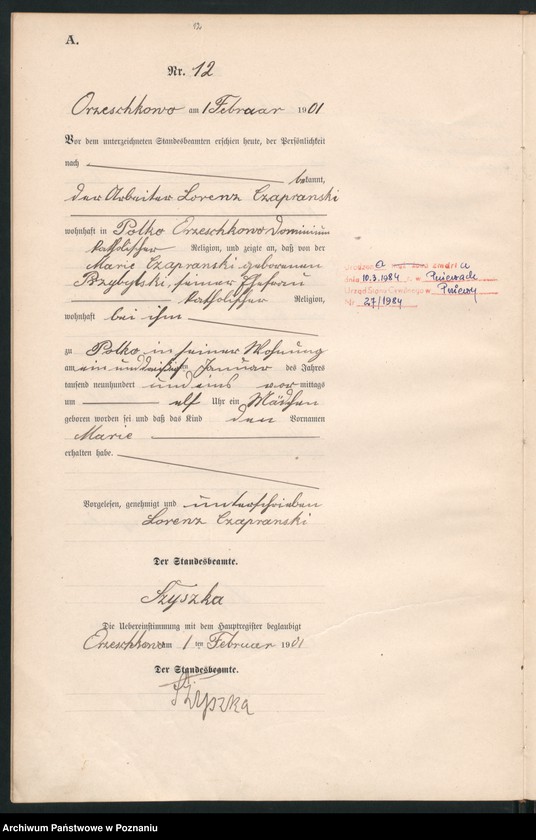 12
A.
Nr. 12
Orzeschkowo am 1 Februar 1901
Vor dem unterzeichneten Standesbeamten erschien heute, der Persönlichkeit
nach bekannt,
der Arbeiter Lorenz Czapranski
wohnhaft in Polko Orzeschkowo Dominium
katholischer Religion, und zeigte an, daß von der
Marie Czapranski geborenen
Przybylski, seiner Ehefrau
katholischer Religion,
wohnhaft bei ihm
zu Polko in seiner Wohnung
am ein und dreißigsten Januar des Jahres
tausend neunhundert und eins vormittags
um elf Uhr ein Mädchen
geboren worden sei und daß das Kind den Vornamen
Marie
erhalten habe.
Vorgelesen, genehmigt und unterschrieben
Lorenz Czapranski
Der Standesbeamte.
Szyszka
Die Uebereinstimmung mit dem Hauptregister beglaubigt
Orzeschkowo am 1 ten Februar 1901
Der Standesbeamte.
Szyszka
a zmarł a
dnia 10.3.1984 r. w Pniewach
Urząd Stanu Cywilnego w Pniewy
Nr 27/1984
Archiwum Państwowe w Poznaniu